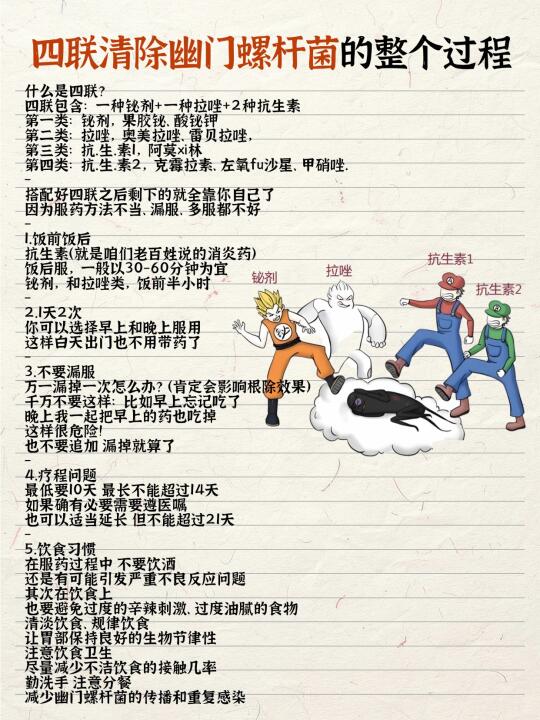 四联清除幽门螺杆菌的整个过程
什么是四联?
四联包含: 一种铋剂+一种拉唑+2种抗生素
第一类: 铋剂, 果胶铋、酸铋钾
第二类: 拉唑, 奥美拉唑、雷贝拉唑,
第三类: 抗.生.素1, 阿莫xi林
第四类: 抗.生.素2, 克霉拉素、左氧fu沙星、甲硝唑.
-
搭配好四联之后剩下的就全靠你自己了
因为服药方法不当、漏服、多服都不好
-
1.饭前饭后
抗生素(就是咱们老百姓说的消炎药)
饭后服, 一般以30-60分钟为宜
铋剂, 和拉唑类, 饭前半小时
-
2.1天2次
你可以选择早上和晚上服用
这样白天出门也不用带药了
-
3.不要漏服
万一漏掉一次怎么办? (肯定会影响根除效果)
千万不要这样: 比如早上忘记吃了
晚上我一起把早上的药也吃掉
这样很危险!
也不要追加 漏掉就算了
-
4.疗程问题
最低要10天 最长不能超过14天
如果确有必要需要遵医嘱
也可以适当延长 但不能超过21天
-
5.饮食习惯
在服药过程中 不要饮酒
还是有可能引发严重不良反应问题
其次在饮食上
也要避免过度的辛辣刺激、过度油腻的食物
清淡饮食、规律饮食
让胃部保持良好的生物节律性
注意饮食卫生
尽量减少不洁饮食的接触几率
勤洗手 注意分餐
减少幽门螺杆菌的传播和重复感染
铋剂
拉唑
抗生素1
抗生素2
铋